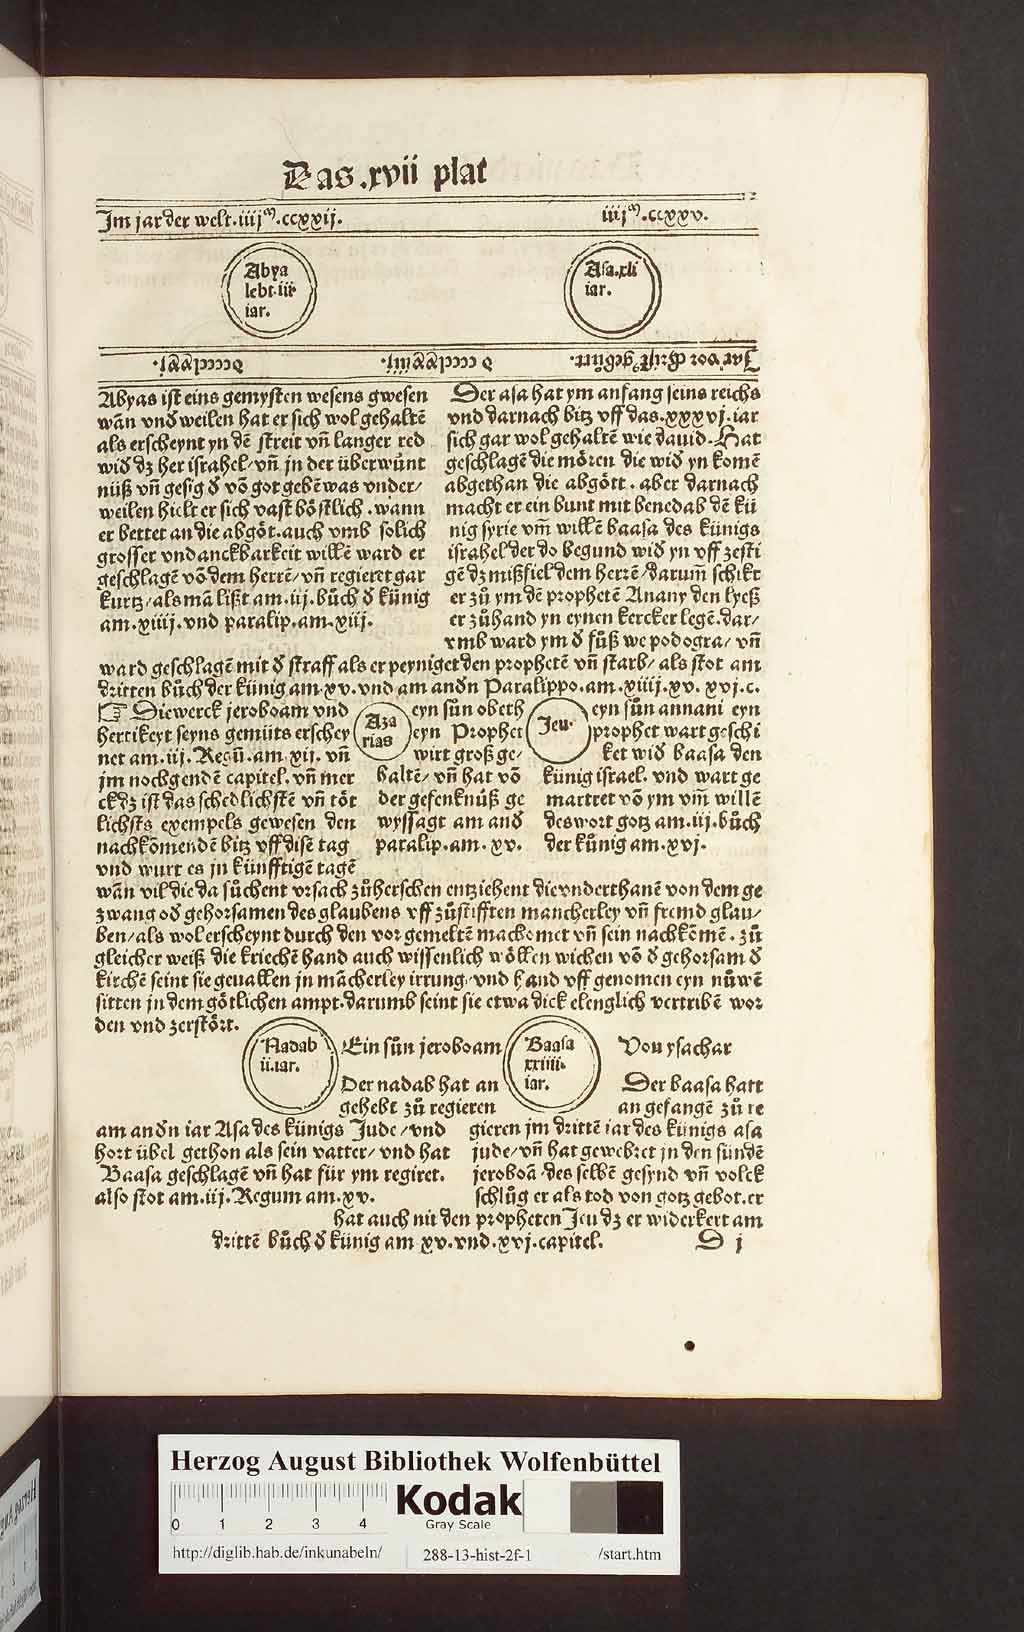 Das .xvii plat
Im jar der welt .iiijᵐ.ccxxij.
iiijᵐ.ccxxv.
Abya
lebt iii
iar.
Asa .xli
iar.
Jar vor Christ gebůrt.
Abyas ist eins gemysten wesens gwesen
wān vnd weilen hat er sich wol gehaltē
als erscheynt yn dē streit vn̄ langer red
wid dz her israhel/ vn̄ jn der überwůnt
nüß vn̄ gesig d̄ vō got gebē was vnder/
weilen hielt er sich vast bößlich . wann
er bettet an die abgöt. auch vmb solich
grosser vndanckbarkeit willē ward er
geschlagē vō dem herrē/ vn̄ regieret gar
kurtz/ als mā lißt am .iij. bůch d̄ künig
am .xiiij. vnd paralip. am .xiij.
Der asa hat ym anfang seins reichs
vnd darnach bitz vff das .xxxvj. iar
sich gar wol gehaltē wie dauid. Hat
geschlagē die mören die wid̄ yn komē
abgethan die abgött . aber darnach
macht er ein bunt mit benedab dē kü
nig syrie vm̄ willē baasa des künigs
israhel der do begund wid̄ yn vff zesti
gē dz mißfiel dem herrē/ darum̄ schikt
er zů ym dē prophetē Anany den lyeß
er zůhand yn eynen kercker legē. dar/
vmb ward ym d̄ fůß we podogra/ vn̄
ward geschlagē mit d̄ straff als er peyniget den prophetē vn̄ starb/ als stot am
dritten bůch der künig am .xv. vnd am andn̄ Paralippo. am .xiiij. xv. xvj. c.
☞ Die werck jeroboam vnd
hertikeyt seyns gemüts erschey
net am .iij. Regū. am .xij. vn̄
jm nochgendē capitel. vn̄ mer
ck dz ist das schedlichstē vn̄ töt
lichsts exempels gewesen den
nachkōmendē bitz vff dise tag
vnd wurt es jn künfftigē tagē
Aza
rias
eyn sůn obeth
eyn Prophet
wirt groß ge/
haltē/ vn̄ hat vō
der gefenknůß ge
wyssagt am and̄
paralip. am . xv.
Jeu.
eyn sůn annani eyn
prophet wart geschi
ket wid̄ baasa den
künig israel. vnd wart ge
martret vō ym vm̄ willē
des wort gotz am .iij. bůch
der kůnig am .xvj.
wān vil die da sůchent vrsach zůherschen entziehent die vnderthanē von dem ge
zwang od̄ gehorsamen des glaubens vff zůstifften mancherley vn̄ fremd glau/
ben/ als wol erscheynt durch den vor gemeltē machomet vn̄ sein nachkēmē . zů
gleicher weiß die kriechē hand auch wissenlich wöllen wichen vō d̄ gehorsam d̄
kirchē seint sie geuallen jn mācherley irrung/ vnd hand vff genomen eyn nůwē
sitten jn dem götlichen ampt. darumb seint sie etwa dick elenglich vertribē wor
den vnd zerstört.
Nadab
ii. iar.
Ein sůn jeroboam
Der nadab hat an
gehebt zů regieren
am andn̄ iar Asa des künigs Jude/ vnd
hort übel gethon als sein vatter/ vnd hat
Baasa geschlagē vn̄ hat für ym regiret.
also stot am .iij. Regum am .xv.
Baasa
xxiiii.
iar.
Von ysachar
Der baasa hatt
an gefangē zů re
gieren jm drittē iar des künigs asa
jude/ vn̄ hat gewebret jn den sündē
jeroboā/ des selbē gesynd vn̄ volck
schlůg er als tod von gotz gebot. er
hat auch nit den propheten Jeu dz er widerkert am
drittē bůch d̄ künig am xv. vnd .xvj. capitel.
D j
Herzog August Bibliothek Wolfenbüttel
0 1 2 3 4
Kodak
Gray Scale
http://diglib.hab.de/inkunabeln/
288-13-hist-2f-1
/start.htm